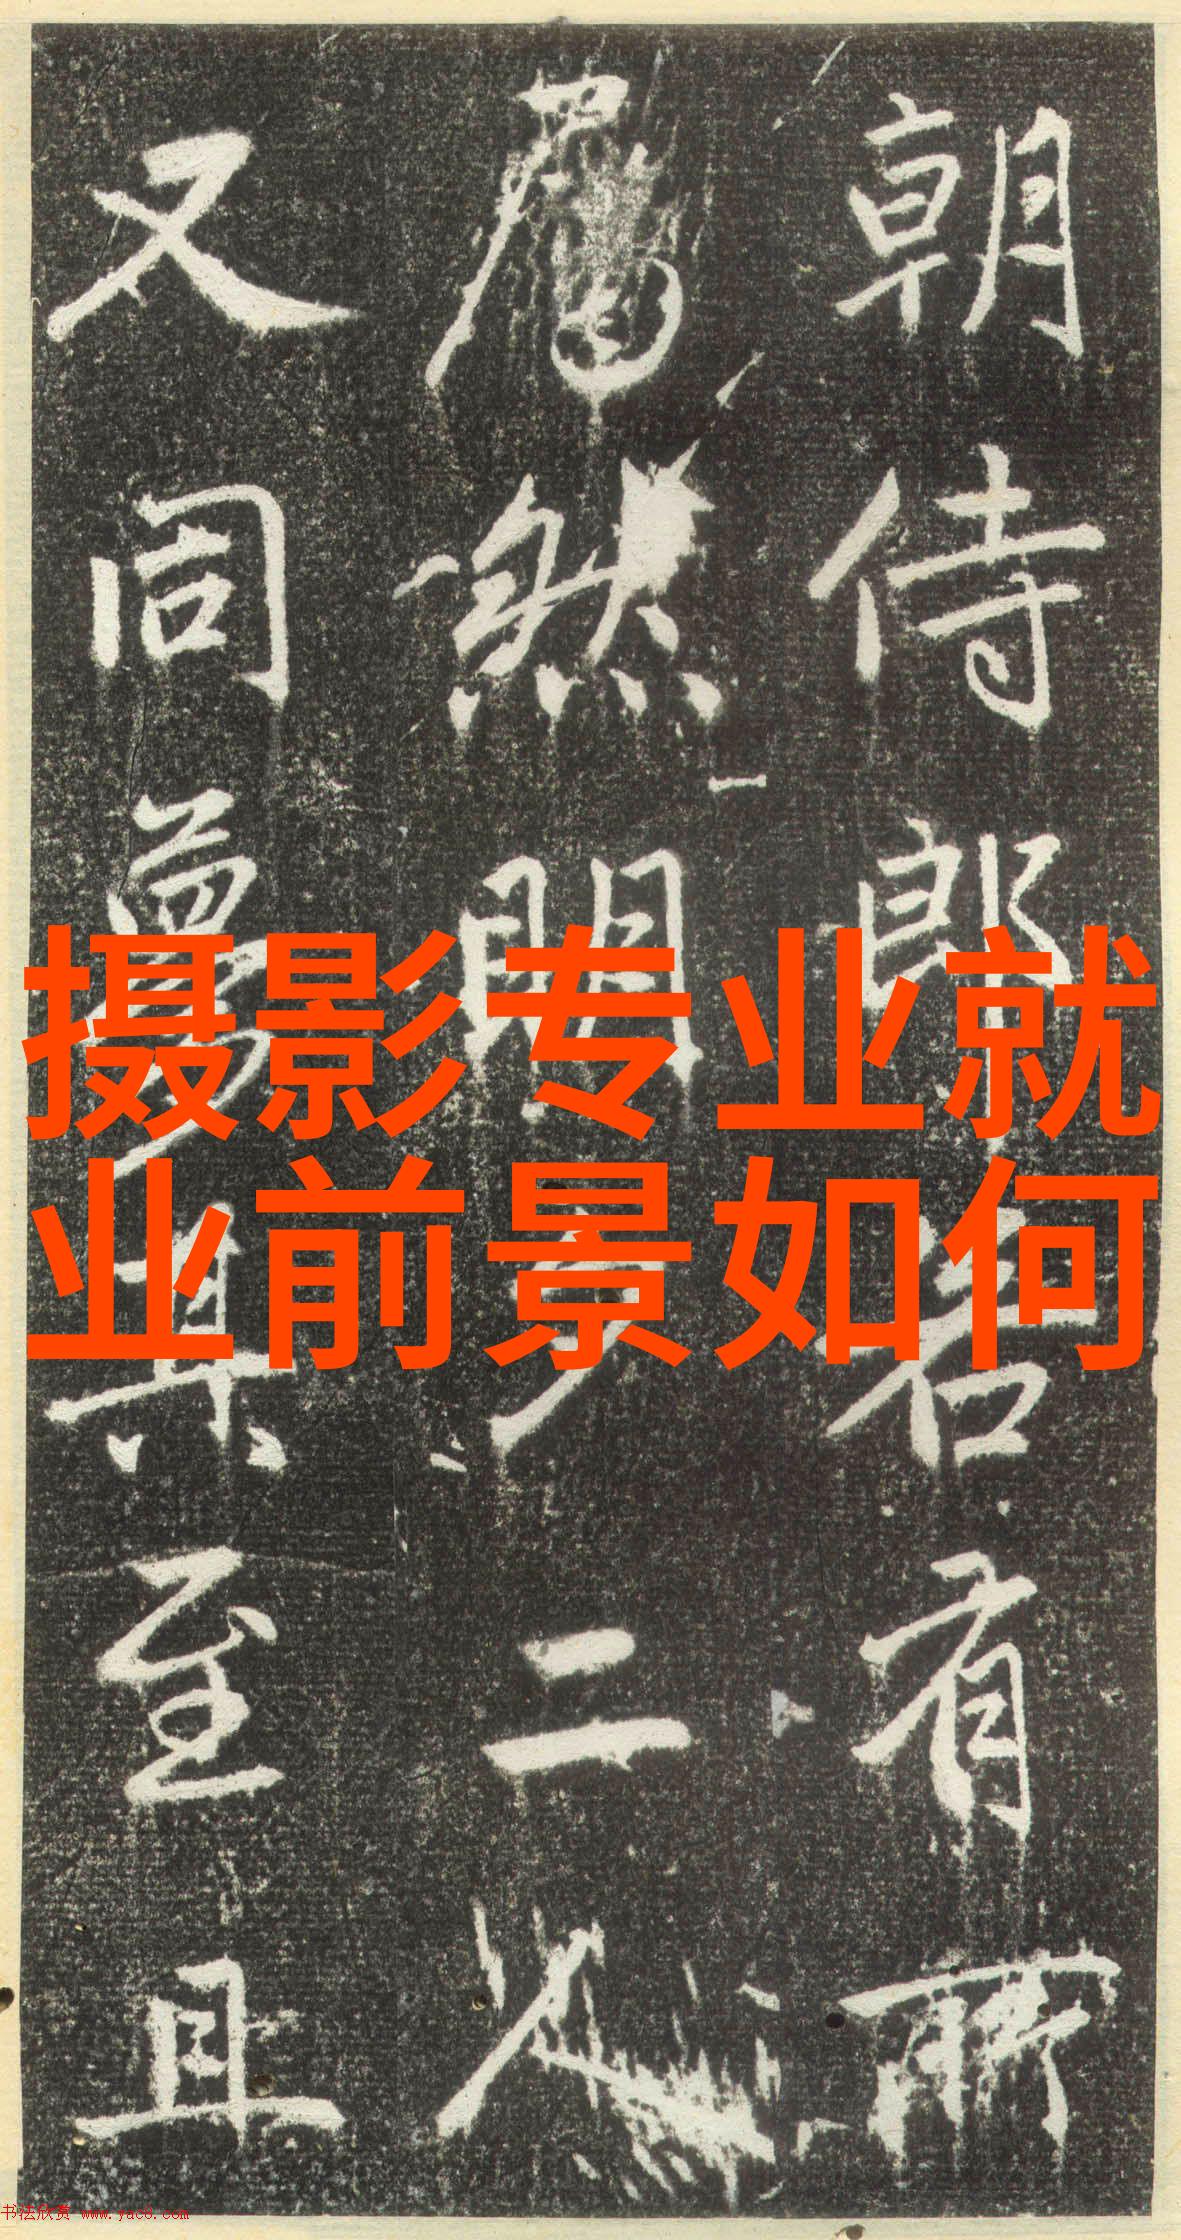 朝侍郎若有所
然明夕二人
又同夢其至且
摄影专业就
业前景如何
书法欣赏 www.yac8.com